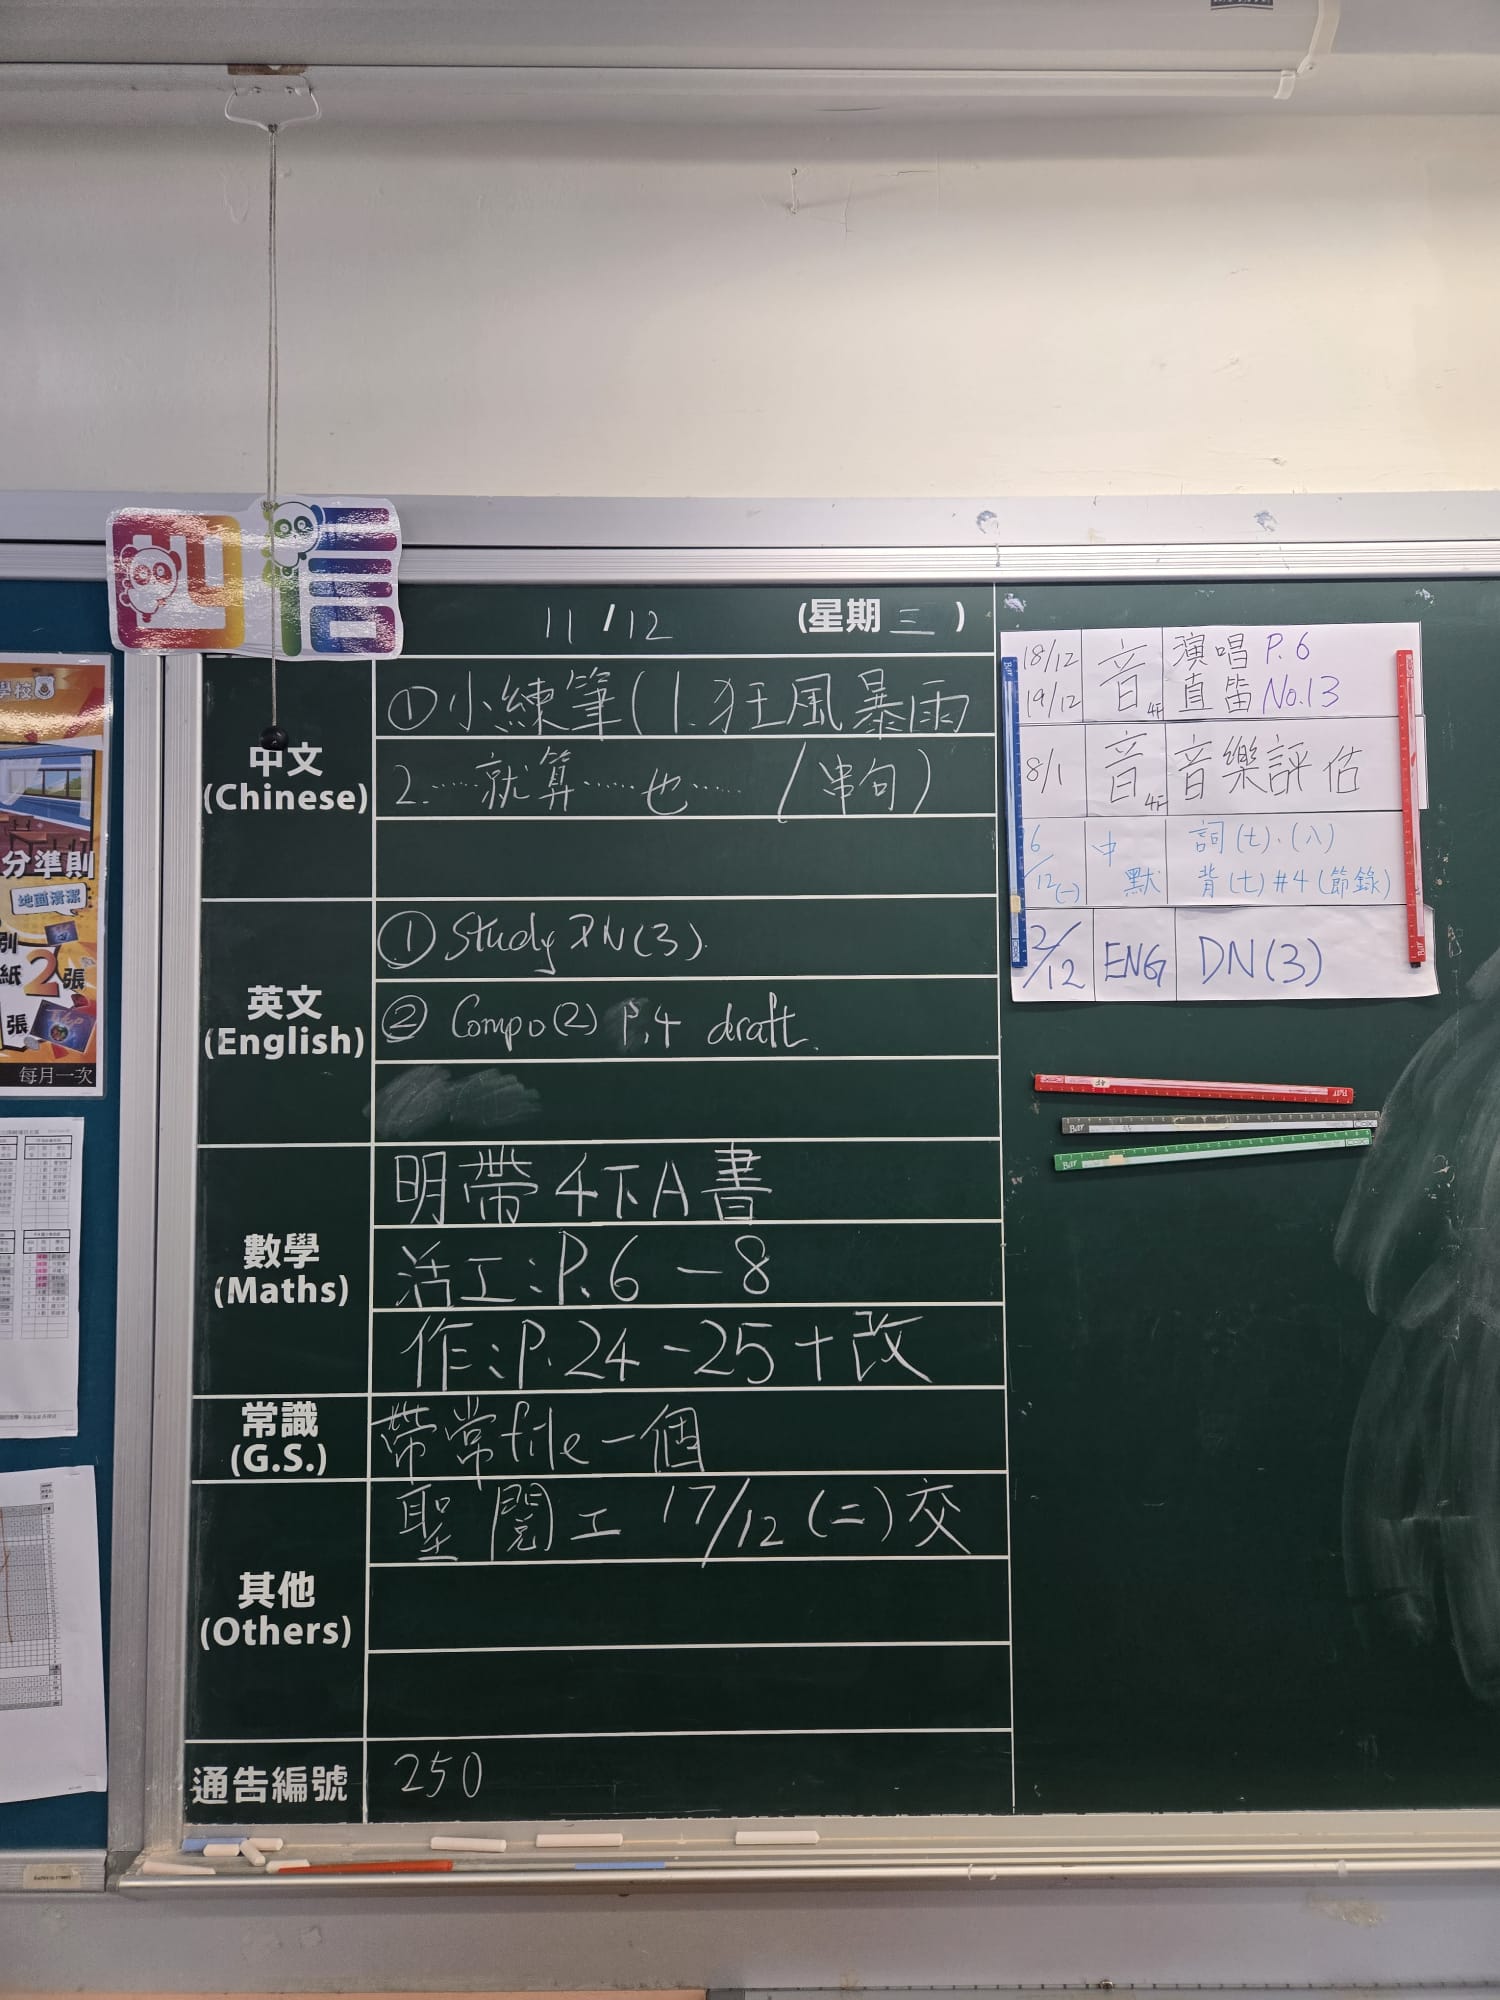 四信
11/12 (星期三)
中文
(Chinese)
①小練筆(1.狂風暴雨
2.……就算……也…… /串句)
英文
(English)
①Study DN(3).
② Compo(2) P.4 draft.
數學
(Maths)
明帶4下A書
活工:P.6-8
作:P.24-25+改
常識
(G.S.)
帶常file一個
其他
(Others)
聖閱工 17/12(二)交
通告編號
250
18/12
19/12
音
演唱 P.6
直笛 No.13
8/1 音 音樂評估
6/12(一) 中默
詞(七)、(八)
背(七)#4(節錄)
2/12 ENG DN(3)
學校
分準則
地面清潔
別
紙2張
張
每月一次